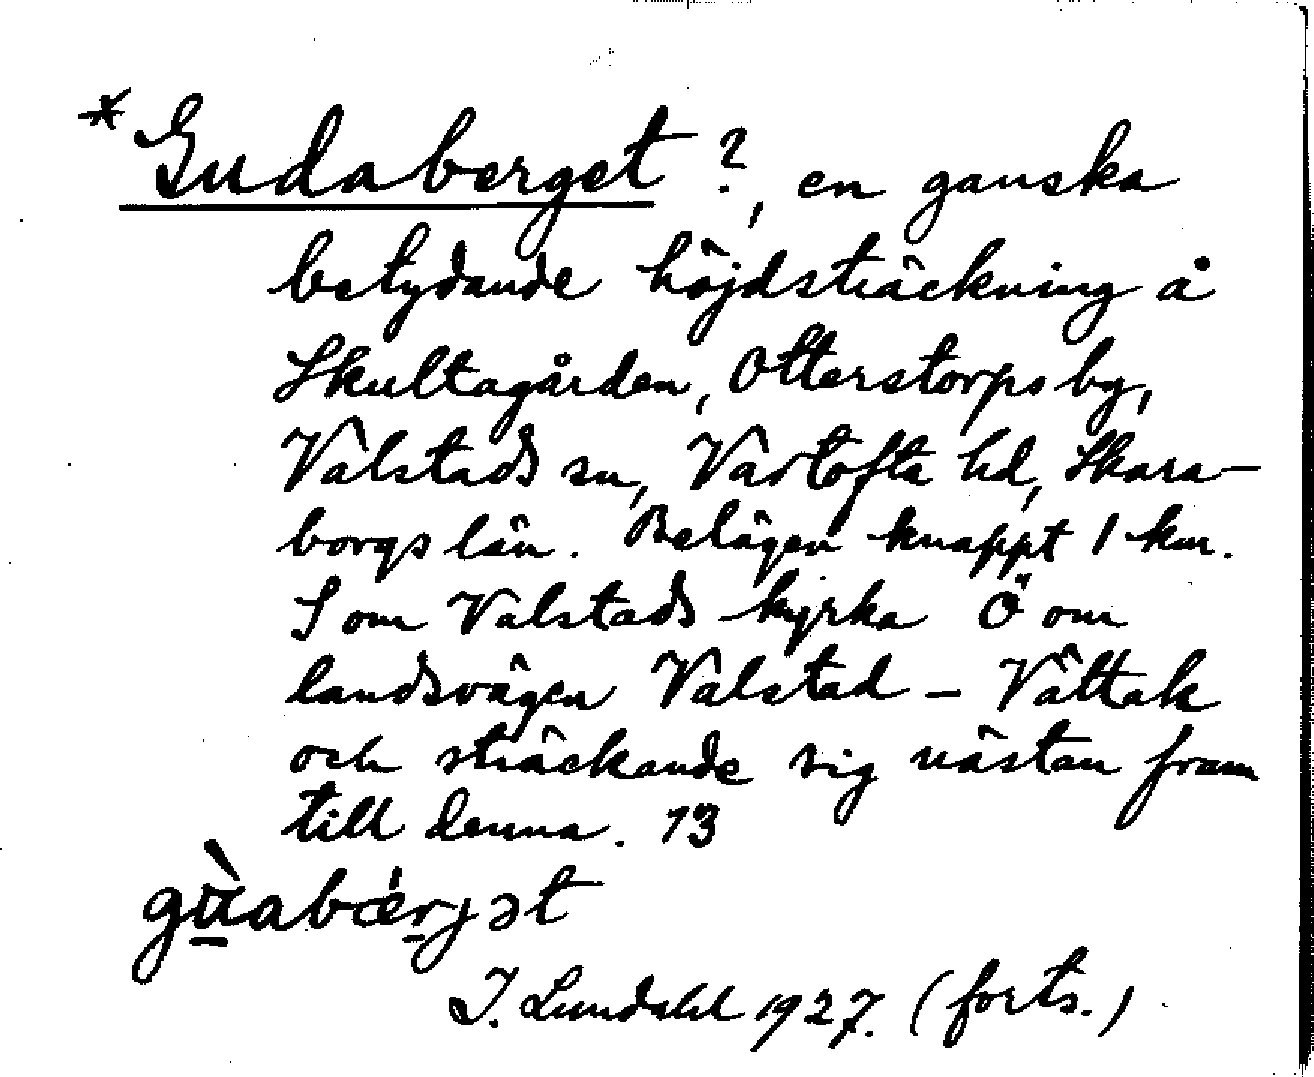 * Gudaberget ?, en ganska
betydande höjdsträckning å
Skultagården, Otterstorps by,
Vålstads sn, Vartofta hd, Skara-
borgs län. Belägen knappt 1 km.
S om Valstads kyrka Ö om
landsvägen Valstad – Vättak
och sträckande sig nästan fram
till denna. 13
gù̱abǽṟjət
I. Lundahl 1927. (forts.)